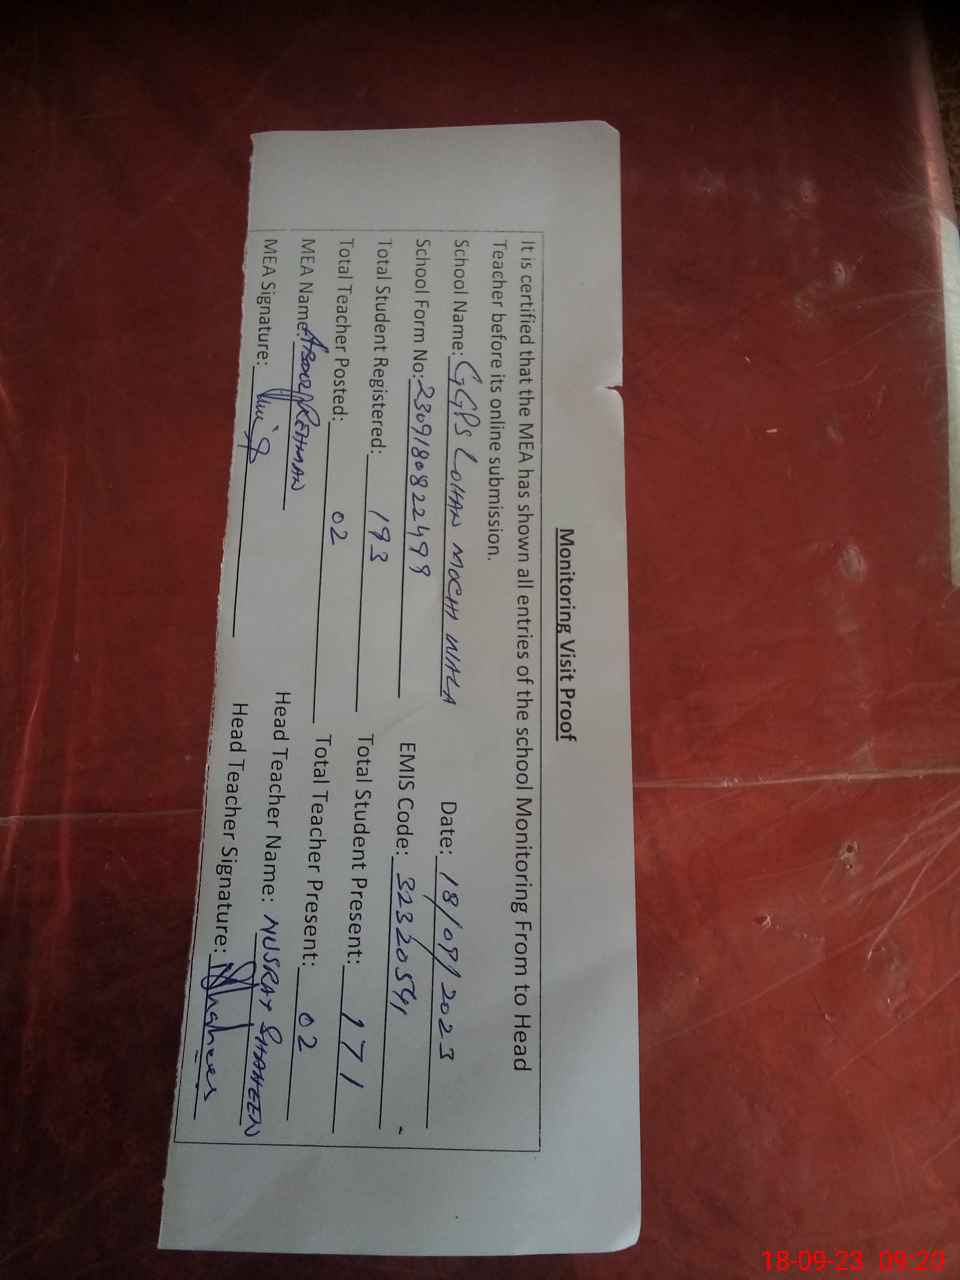 Monitoring Visit Proof
It is certified that the MEA has shown all entries of the school Monitoring From to Head
Teacher before its online submission.
School Name: GGPS LOHAN MOCHI WALA Date: 18/09/2023
School Form No: 230918082249 EMIS Code: 32320541
Total Student Registered: 193 Total Student Present: 171
Total Teacher Posted: 02 Total Teacher Present: 02
MEA Name: ABDUL REHMAN Head Teacher Name: NUSRAT SHAHEEN
MEA Signature: Head Teacher Signature: NShaheen
18-09-23 09:20